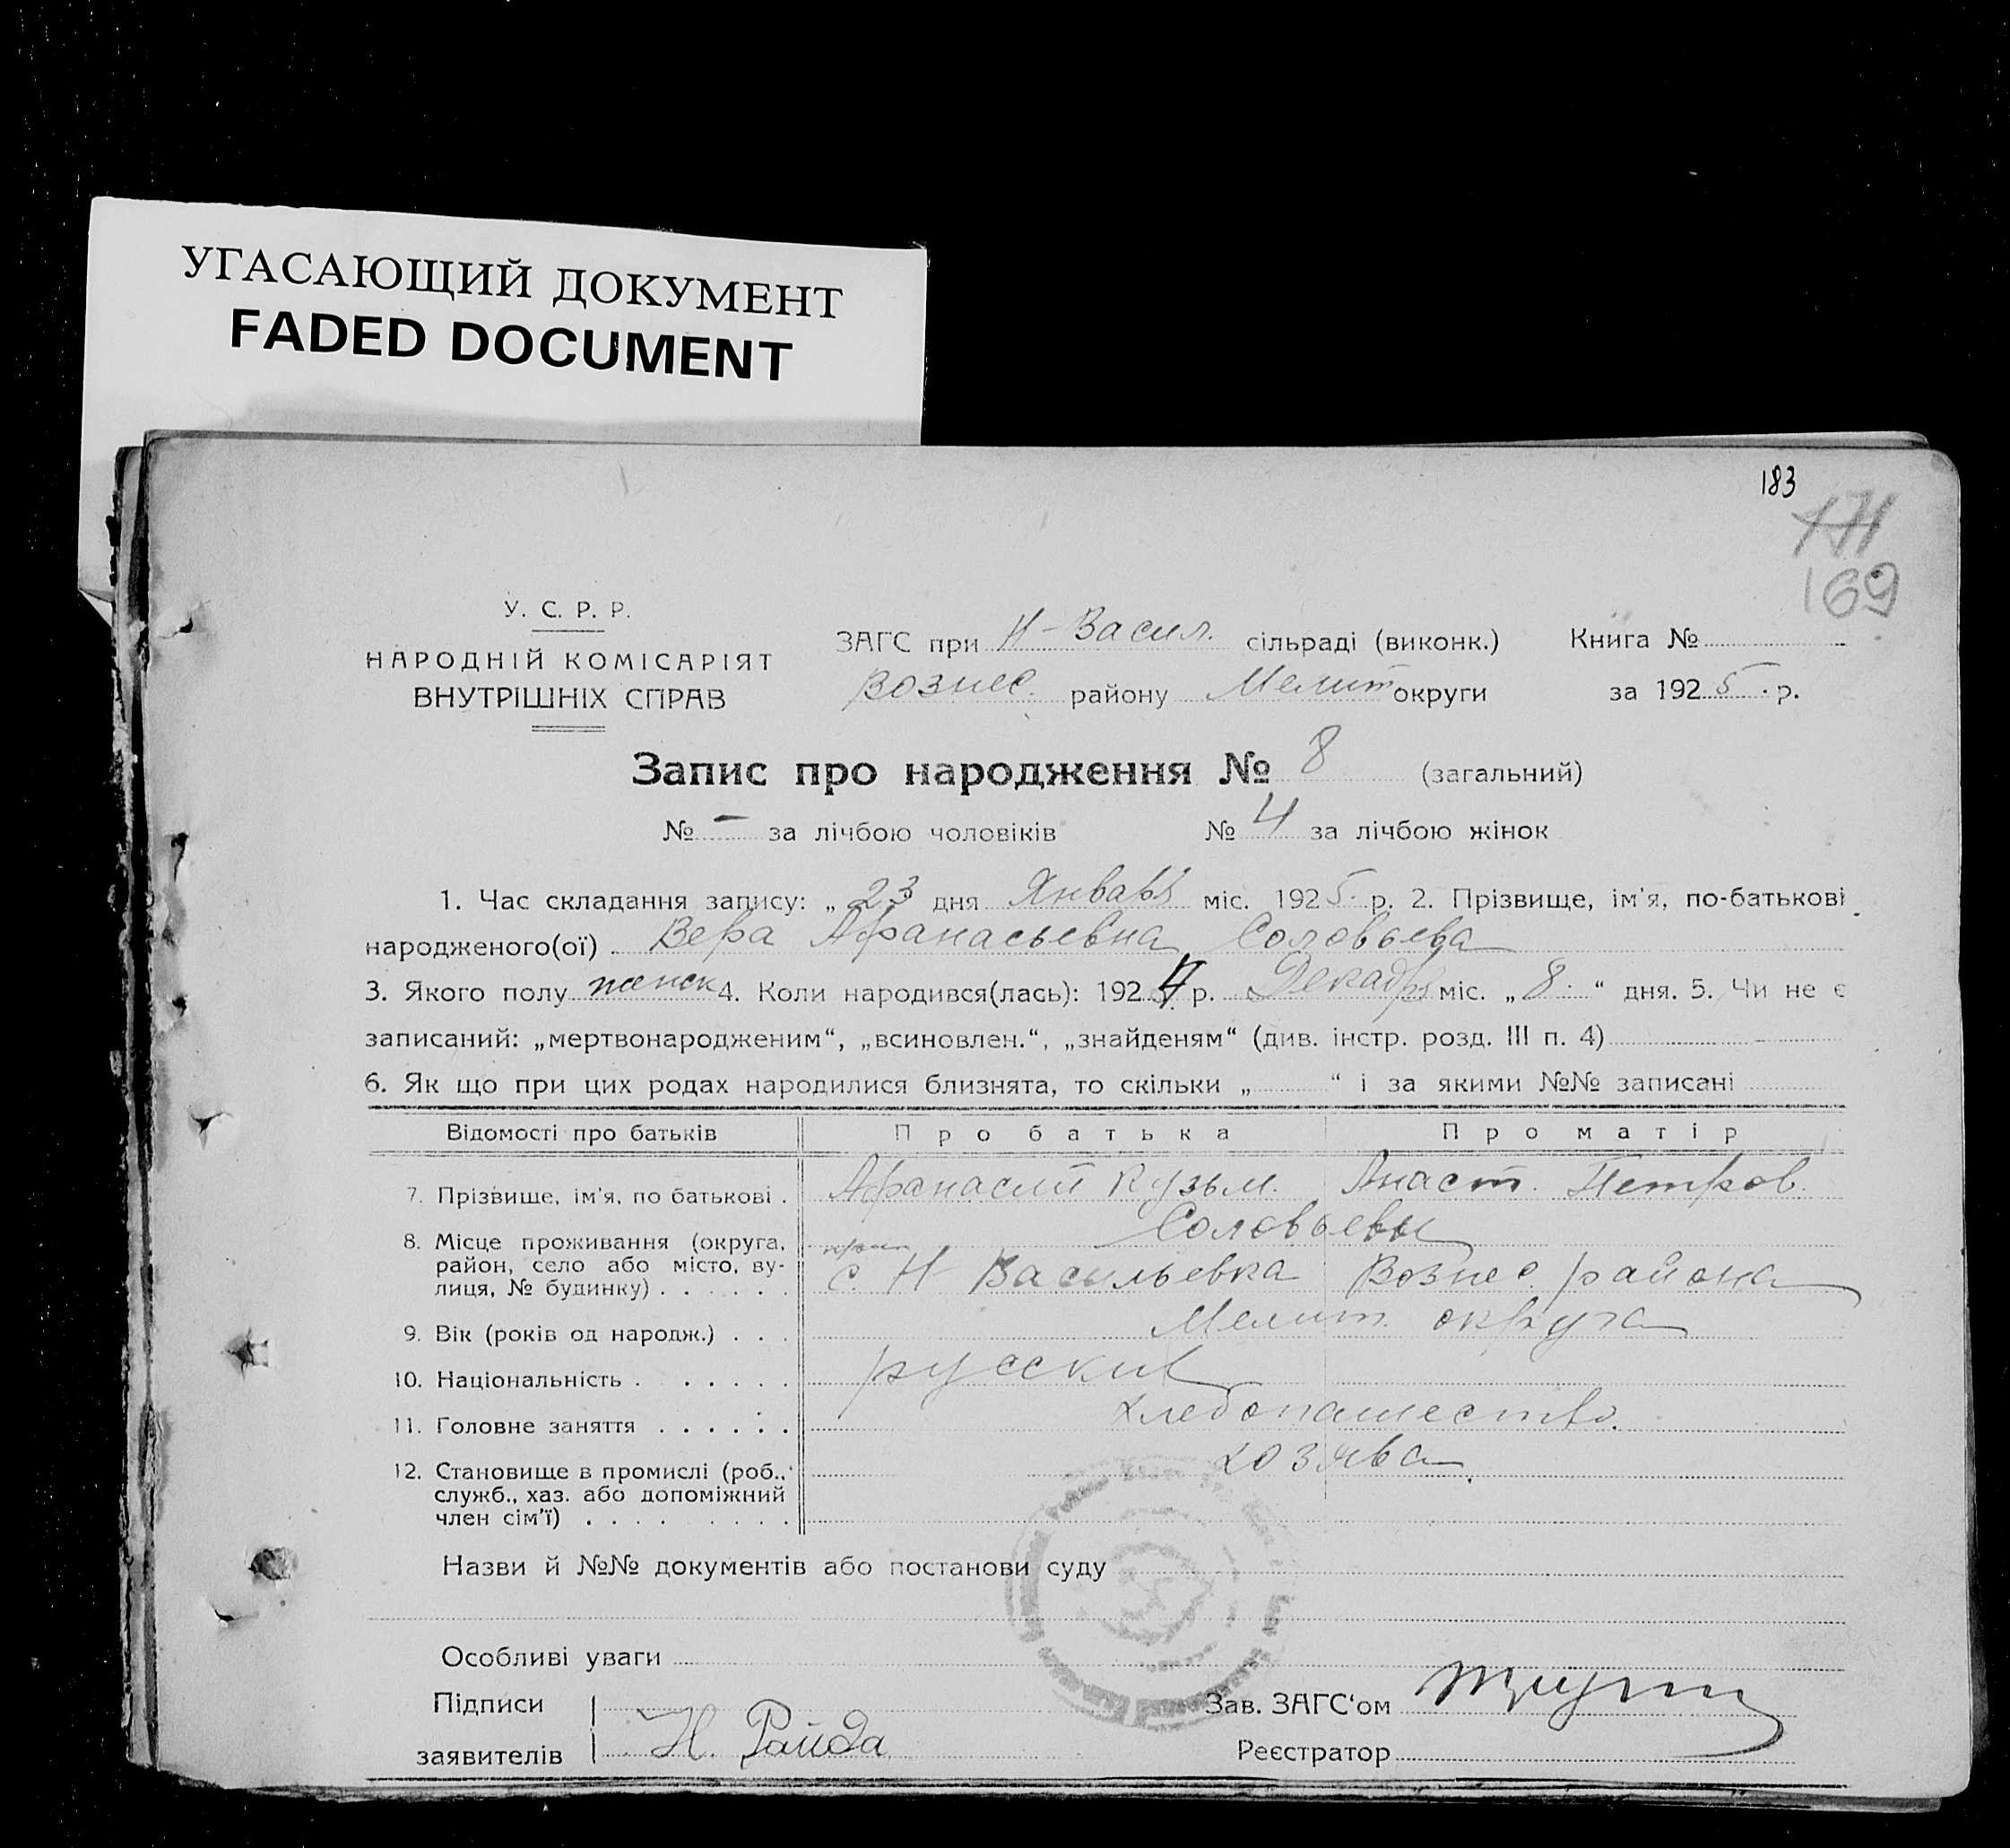 УГАСАЮЩИЙ ДОКУМЕНТ
FADED DOCUMENT
183
171
169
У. С. Р. Р.
НАРОДНІЙ КОМІСАРІЯТ
ВНУТРІШНІХ СПРАВ
ЗАГС при Н-Васил. сільраді (виконк.) Книга №
Вознес. району Мелит округи за 1925 р.
Запис про народження № 8 (загальний)
№ – за лічбою чоловіків № 4 за лічбою жінок
1. Час складання запису: „23 дня Января міс. 1925 р. 2. Прізвище, ім'я, по-батькові
народженого(ої) Вера Афанасьевна Соловьева
3. Якого полу женск 4. Коли народився(лась): 1924 р. Декабря міс. „8" дня. 5. Чи не є
записаний: „мертвонародженим", „всиновлен.", „знайденям" (див. інстр. розд. III п. 4)
6. Як що при цих родах народилися близнята, то скільки „ " і за якими №№ записані
Відомості про батьків Про батька Про матір
7. Прізвище, ім'я, по батькові . Афанасий Кузьм. Анаст. Петров.
Соловьевы
8. Місце проживання (округа,
район, село або місто, вулиця, № будинку) . . . . . . с. Н Васильевка Вознес. района
Мелит. округа
9. Вік (років од народж.) . . .
10. Національність . . . . . . русские
11. Головне заняття . . . . . . хлебопашество.
12. Становище в промислі (роб., хозяева.
служб., хаз. або допоміжний
член сім'ї) . . . . . . . . .
Назви й №№ документів або постанови суду
Особливі уваги
Підписи
заявителів Н. Райда
Зав. ЗАГС'ом
Реєстратор